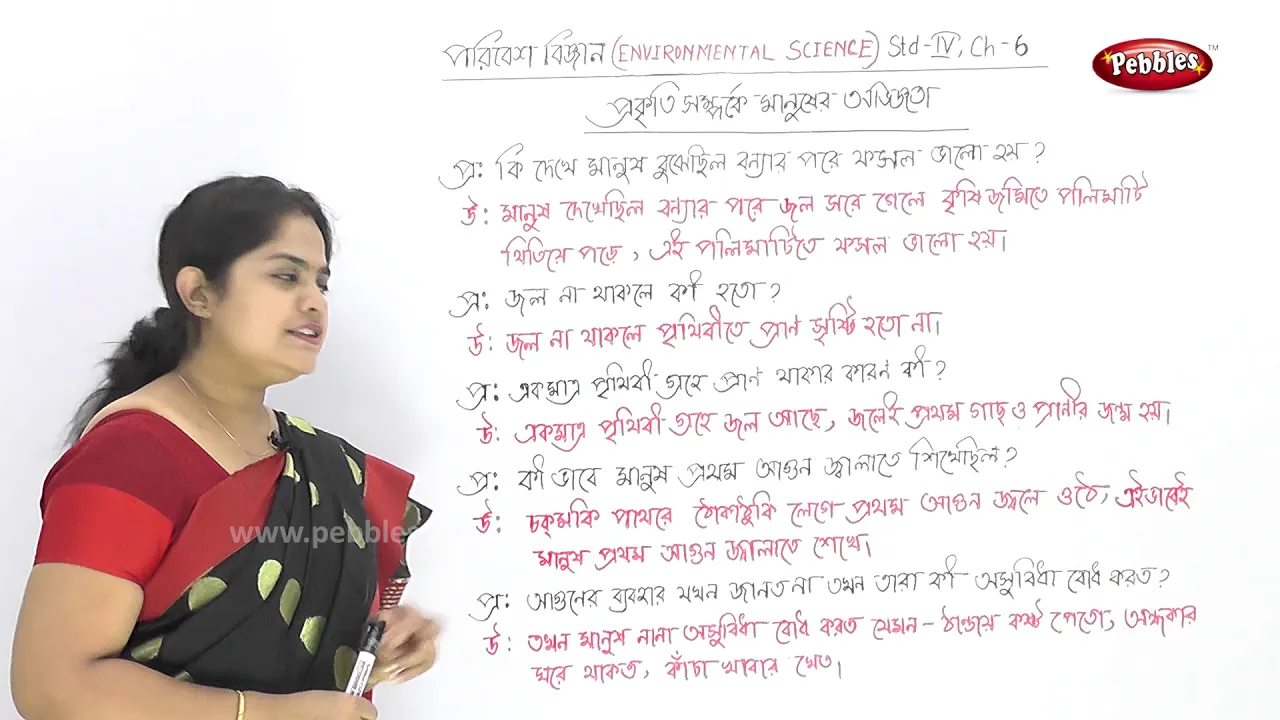 পরিবেশ বিজ্ঞান (ENVIRONMENTAL SCIENCE) Std-IV, Ch-6
Pebbles TM
প্রকৃতি সম্পর্কে মানুষের অভিজ্ঞতা
প্র: কি দেখে মানুষ বুঝেছিল বন্যার পরে ফসল ভালো হয় ?
উ: মানুষ দেখেছিল বন্যার পরে জল সরে গেলে কৃষি জমিতে পলিমাটি
থিতিয়ে পড়ে , এই পলিমাটিতে ফসল ভালো হয়।
প্র: জল না থাকলে কী হতো ?
উ: জল না থাকলে পৃথিবীতে প্রাণ সৃষ্টি হতো না।
প্র: একমাত্র পৃথিবী গ্রহে প্রাণ থাকার কারণ কী ?
উ: একমাত্র পৃথিবী গ্রহে জল আছে, জলেই প্রথম গাছ ও প্রাণীর জন্ম হয়।
প্র: কী ভাবে মানুষ প্রথম আগুন জ্বালাতে শিখেছিল ?
উ: চক্‌মকি পাথরে ঠোকাঠুকি লেগে প্রথম আগুন জ্বলে ওঠে, এইভাবেই
মানুষ প্রথম আগুন জ্বালাতে শেখে।
www.pebbles
প্র: আগুনের ব্যবহার যখন জানত না তখন তারা কী অসুবিধা বোধ করত ?
উ: তখন মানুষ নানা অসুবিধা বোধ করত যেমন - ঠাণ্ডায় কষ্ট পেতো, অন্ধকার
ঘরে থাকত, কাঁচা খাবার খেত।